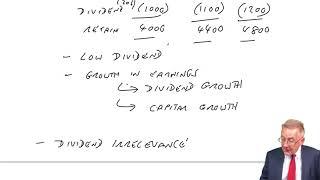 DIVIDEND (20%) (1000) (1100) (1200)
RETAIN 4000 4400 4800
- LOW DIVIDEND
- GROWTH IN EARNINGS
↳ DIVIDEND GROWTH
↳ CAPITAL GROWTH
- DIVIDEND IRRELEVANCE